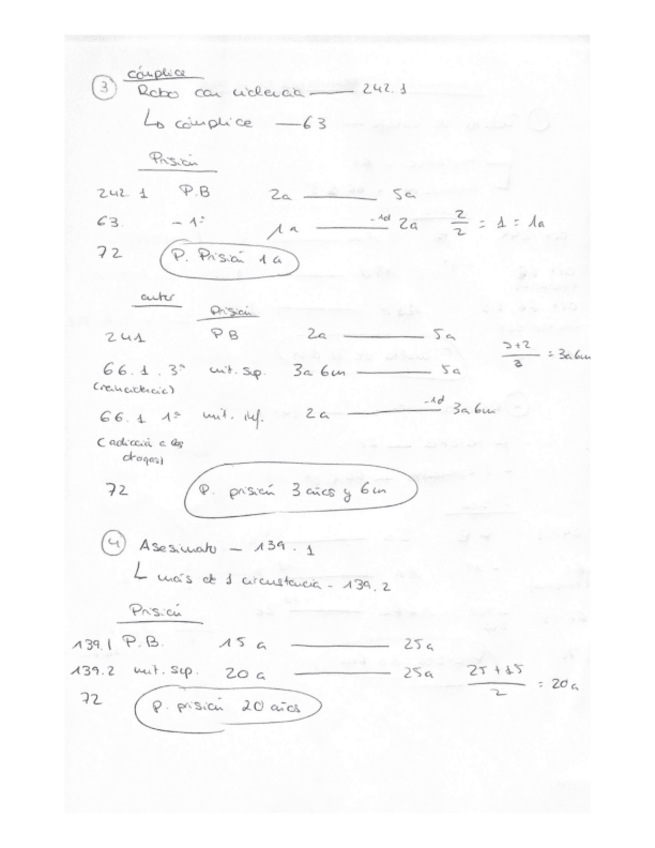 ③ cómplice
Robo con violencia —— 242.1
↳ cómplice — 63
Prisión
242.1 P.B 2a ——— 5a
63. - 1º 1a ——— -1d 2a 2/2 = 1 = 1a
72 P. Prisión 1a
autor Prisión
241 PB 2a ——— 5a
66.1.3ª mit. sp. 3a 6m ——— 5a 5+2/2 = 3a 6m
(reincidencia)
66.1 1ª mit. inf. 2a ——— -1d 3a 6m
(adicción a las
drogas)
72 P. prisión 3 años y 6m
④ Asesinato — 139.1
↳ más de 1 circustancia - 139.2
Prisión
139.1 P.B. 15 a ——— 25a
139.2 mit. sup. 20 a ——— 25a 25+15/2 = 20a
72 P. prisión 20 años